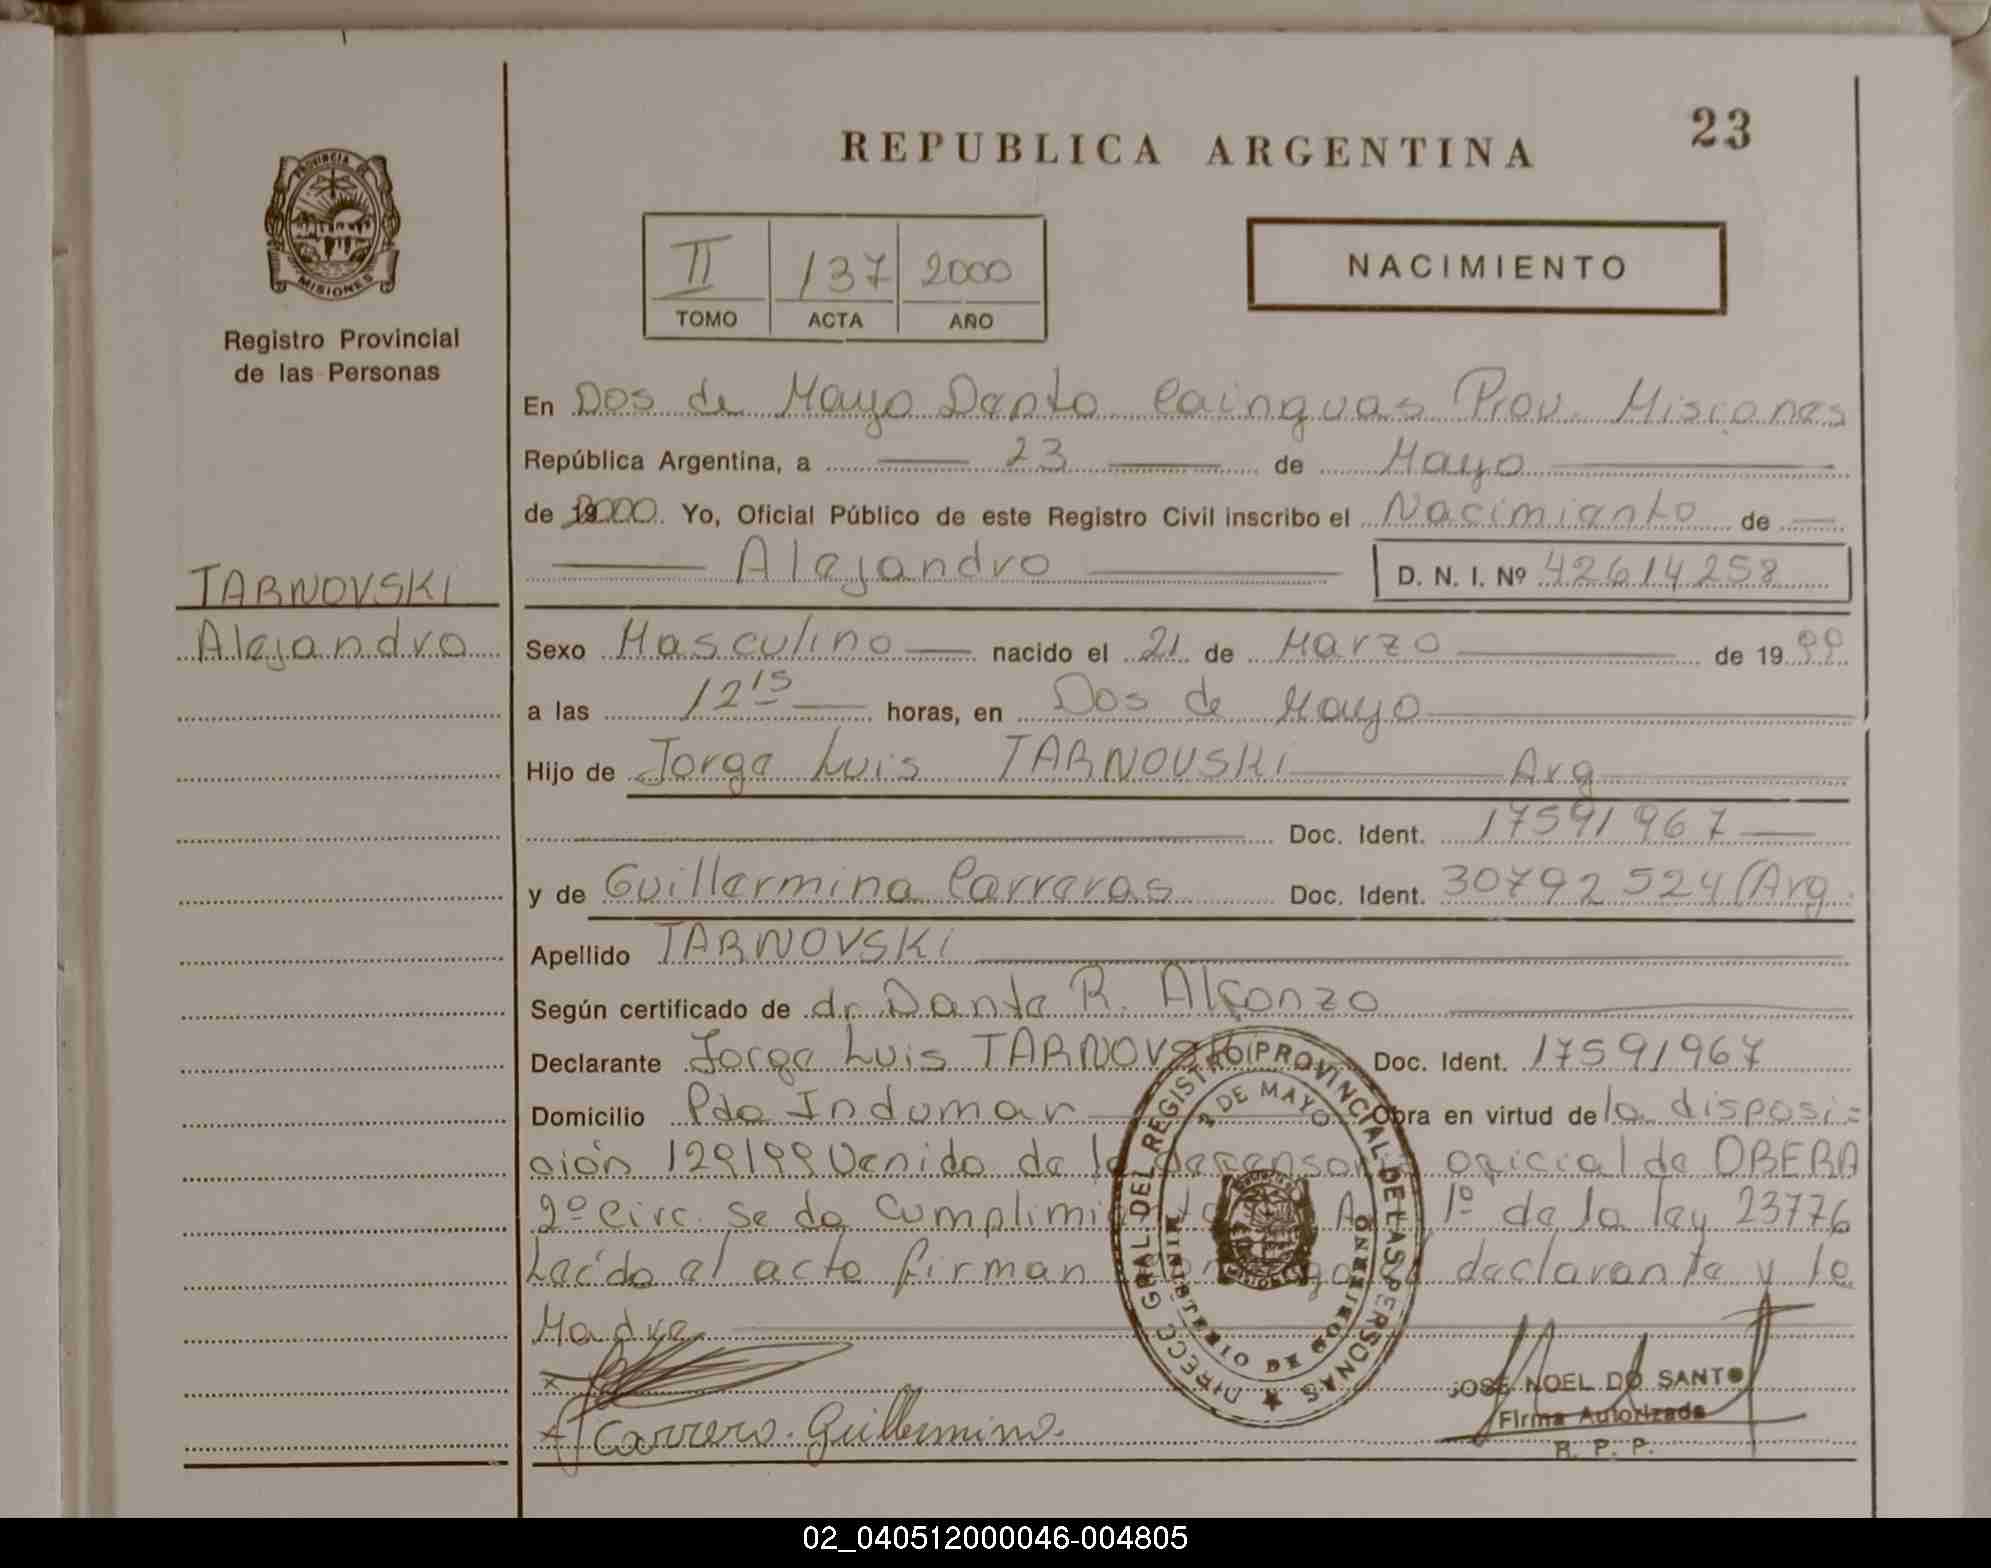 23
REPUBLICA ARGENTINA
PROVINCIA DE
MISIONES
Registro Provincial
de las Personas
NACIMIENTO
II 137 2000
TOMO ACTA AÑO
En Dos de Mayo Depto Cainguas Prov. Misiones
República Argentina, a 23 de Mayo
de 2000. Yo, Oficial Público de este Registro Civil inscribo el Nacimiento de
Alejandro D. N. I. Nº 42614258
TARNOVSKI
Alejandro
Sexo Masculino nacido el 21 de Marzo de 1999
a las 12 15 horas, en Dos de Mayo
Hijo de Jorge Luis TARNOVSKI Arg
Doc. Ident. 17591967
y de Guillermina Carreras Doc. Ident. 30792524 (Arg.
Apellido TARNOVSKI
Según certificado de dr. Dante R. Alfonzo
Declarante Jorge Luis TARNOVSKI Doc. Ident. 17591967
Domicilio Pdo Indumar Obra en virtud de la disposi=
ción 129/99 Venido de la defensoria oficial de OBERA
2º Circ. se da cumplimiento Art 1º de la ley 23776
Leído el acta firman conmigo el declarante y la
Madre
DIRECC GRAL. DEL REGISTRO PROVINCIAL DE LAS PERSONAS
2 DE MAYO
MINISTERIO DE GOBIERNO
MISIONES
Carrera. Guillermina.
JOSE NOEL DO SANTOS
Firma Autorizada
R. P. P.
02_040512000046-004805